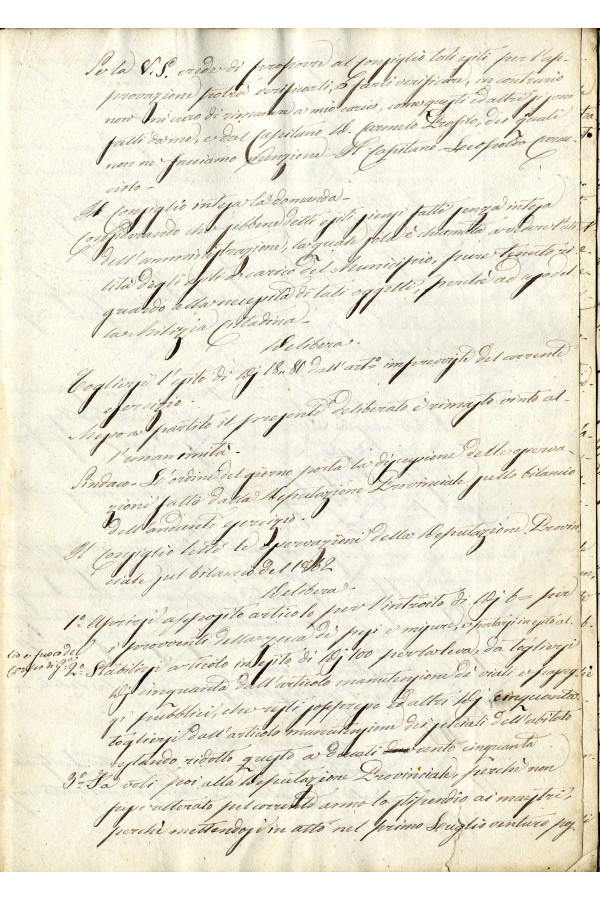 Se la V.S. crede di proporre al Consiglio tali esiti per l'ap-
provazione potrà verificarli, o farli verificare, in contrario
non mi curo di rimanere a mio carico, come questi ed altri si sono
fatti da me, e dal Capitano D. Carmelo de' quali
non ne facciamo menzione - Il Capitano Leopoldo Carac-
ciolo -
Il Consiglio intesa la domanda -
Considerando che sebbene detti esiti siensi fatti senza intesa
dell'amministrazione, la quale sola è chiamata a vedere l'uti-
lità degli esiti a carico del Municipio, pure tenuto ri-
guardo alla necessità di tali oggetti, perchè ad uso del-
la Milizia Cittadina -
Delibera -
Togliersi l'esito di Dj 18.80 dall'arto imprevisti del corrente
esercizio -
Messo a partito il presente deliberato è rimasto vinto al-
l'unanimità -
Sindaco - L'ordine del giorno porta la discussione delle osserva-
zioni fatte dalla Deputazione Provinciale sullo bilancio
dell'andante esercizio -
Il Consiglio lette le osservazioni della Deputazione Provin-
ciale sul bilancio del 1862
Delibera -
1o Aprirsi apposito articolo per l'introito di Dj 6 = per
i proventi della zecca de' pesi e misure,
2o Stabilirsi articolo in esito di Dj 100 per la leva, da togliersi
Dj cinquanta dall'articolo manutenzione di viali e passeg-
gi pubblici, che resti soppresso ed altri Dj cinquanta
togliersi dall'articolo manutenzione dei selciati dell'abitato
restando ridotto questo a ducati cento cinquanta
3o Fa voti poi alla Deputazione Provinciale, perchè non
sia alterato pel corrente anno lo stipendio ai maestri,
perchè mettendosi in atto nel primo Luglio venturo